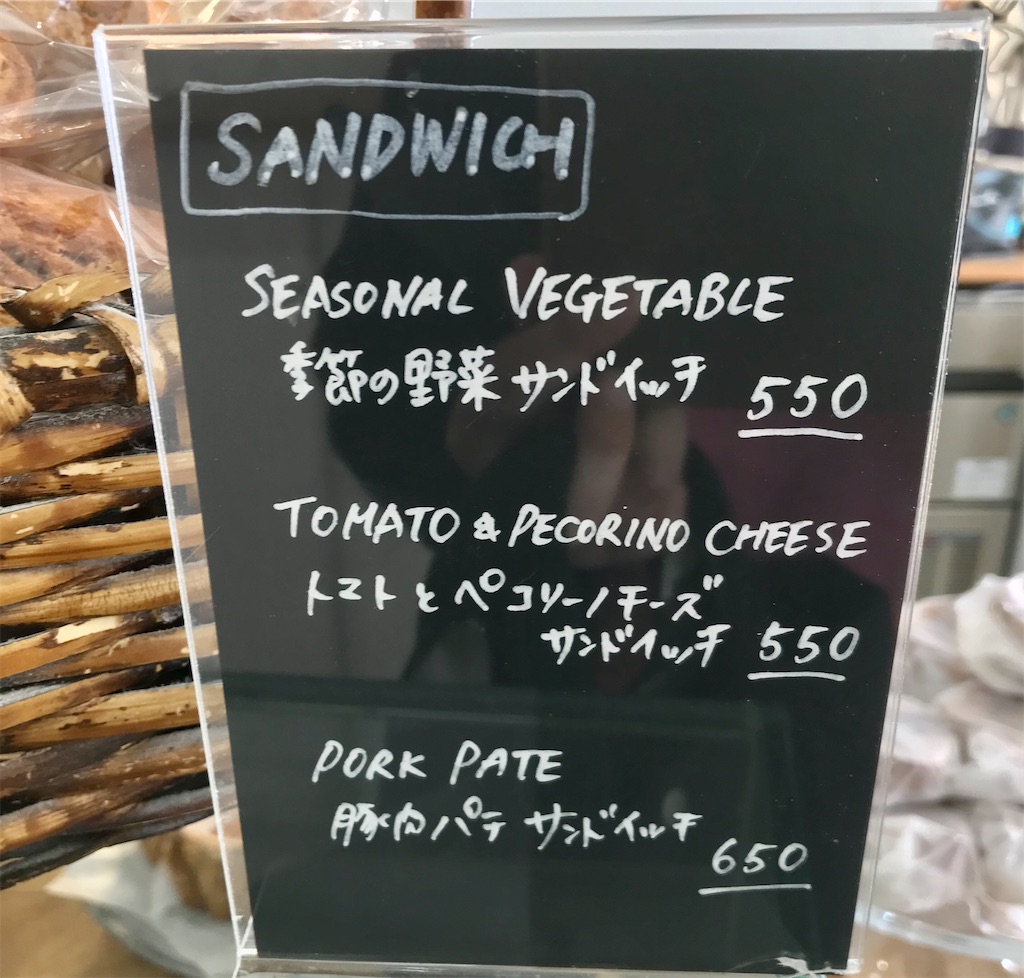 SANDWICH
SEASONAL VEGETABLE
季節の野菜サンドイッチ 550
TOMATO & PECORINO CHEESE
トマトとペコリーノチーズ
サンドイッチ 550
PORK PATE
豚肉パテサンドイッチ
650